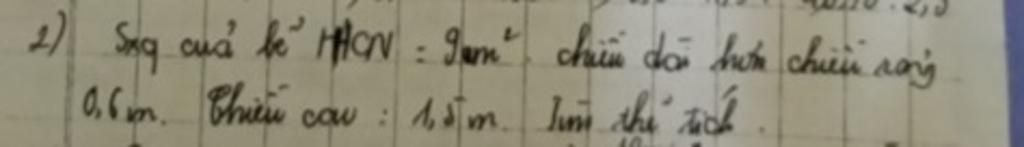 2) Sxq cuả bể HHCN : 9m². chiều dài hơn chiều rộng
0,6m. Chiều cao : 1,5m. Tìm thể tích.